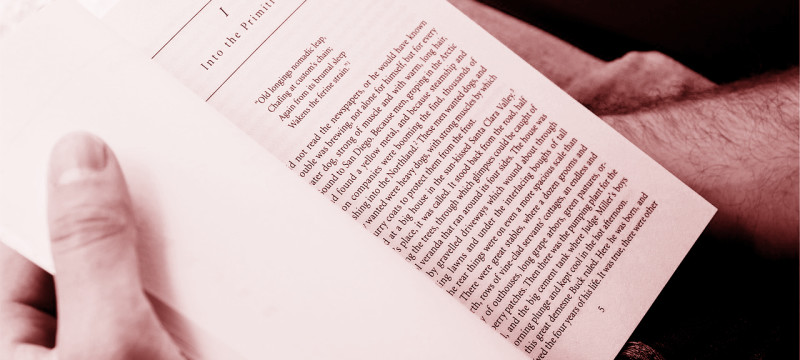 I
Into the Primiti
"Old longings nomadic leap,
Chafing at custom's chain;
Again from its brumal sleep
Wakens the ferine strain."1
d not read the newspapers, or he would have known
ouble was brewing, not alone for himself, but for every
ater dog, strong of muscle and with warm, long hair,
ound to San Diego. Because men, groping in the Arctic
d found a yellow metal, and because steamship and
on companies were booming the find, thousands of
shing into the Northland.2 These men wanted dogs, and
wanted were heavy dogs, with strong muscles by which
urry coats to protect them from the frost.
d at a big house in the sun-kissed Santa Clara Valley.3
's place, it was called. It stood back from the road, half
g the trees, through which glimpses could be caught of
l veranda that ran around its four sides. The house was
by gravelled driveways which wound about through
ing lawns and under the interlacing boughs of tall
he rear things were on even a more spacious scale than
There were great stables, where a dozen grooms and
th, rows of vine-clad servants' cottages, an endless and
y of outhouses, long grape arbors, green pastures, or-
berry patches. Then there was the pumping plant for the
l, and the big cement tank where Judge Miller's boys
orning plunge and kept cool in the hot afternoon.
this great demesne Buck ruled. Here he was born, and
ved the four years of his life. It was true, there were other
5